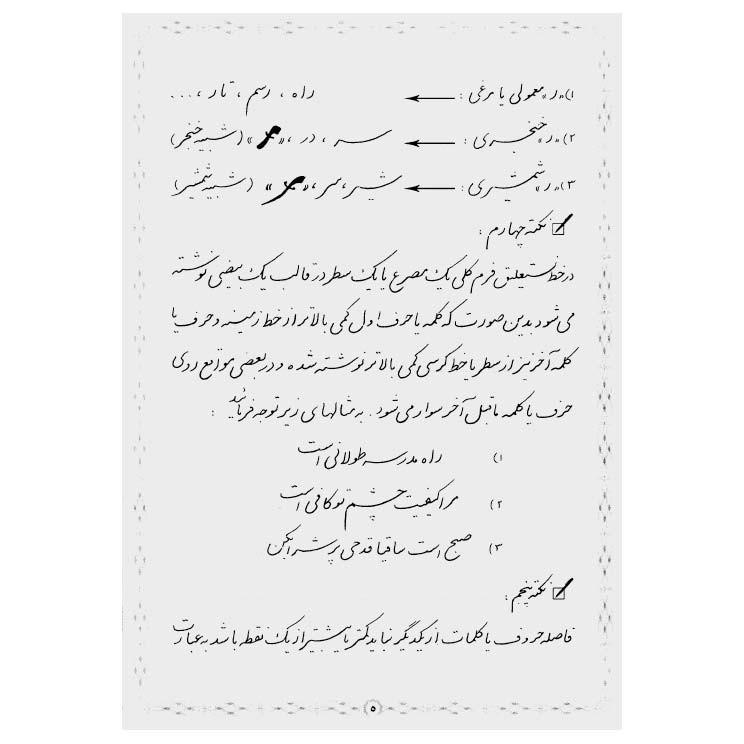 ۱) «ر» معمولی یا مرغی : راه ، رسم ، تار ، ...
۲) «ر» خنجری : سر ، در ، «ر» (شبیه خنجر)
۳) «ر» شمشیری : شیر ، سر ، «ر» (شبیه شمشیر)
نکته چهارم :
در خط نستعلیق فرم کلی یک مصرع یا یک سطر در قالب یک بیضی نوشته
می شود بدین صورت که کلمه یا حرف اول کمی بالاتر از خط زمینه و حرف یا
کلمه آخر نیز از سطر یا خط کرسی کمی بالاتر نوشته شده و در بعضی مواقع روی
حرف یا کلمه ماقبل آخر سوار می شود . به مثالهای زیر توجه فرمائید :
۱) راه مدرسه طولانی است
۲) مرا کیفیت چشم تو کافی است
۳) صبح است ساقیا قدحی پر شراب کن
نکته پنجم :
فاصله حروف یا کلمات از یکدیگر نباید کمتر یا بیشتر از یک نقطه باشد به عبارت
۵